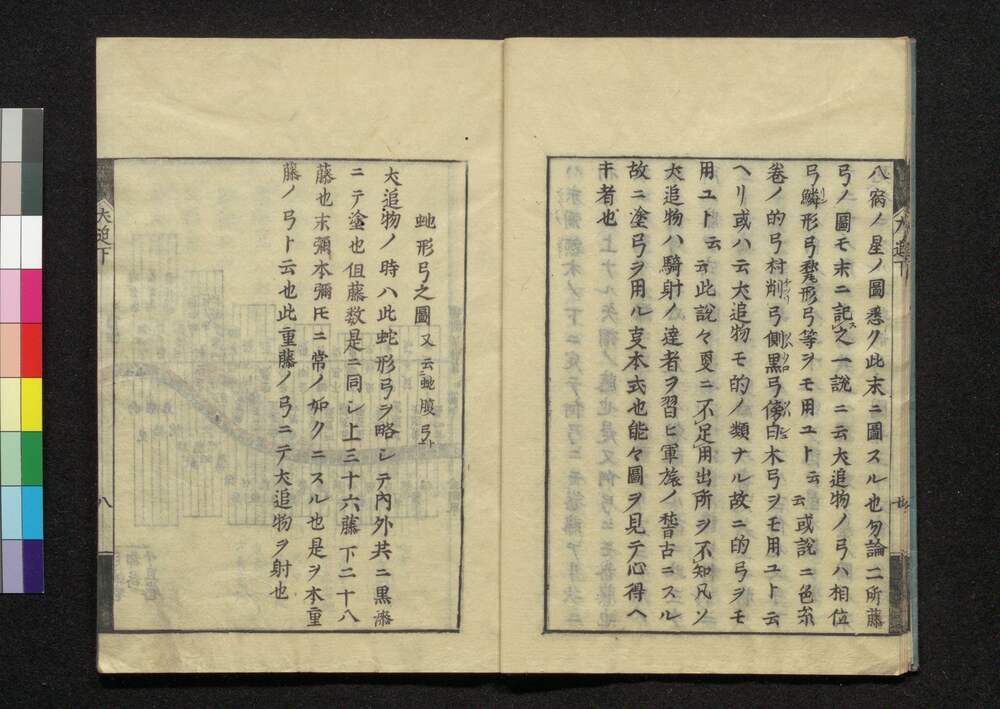 八宿ノ星ノ圖悉ク此末ニ圖スル也勿論二所藤
弓ノ圖モ末ニ記之一說ニ云犬追物ノ弓ハ相位
弓鱗形弓形弓等ヲモ用ユト云云或說ニ色糸
卷ノ的弓村削弓側黒弓傍白木弓ヲモ用ユト云
ヘリ或ハ云犬追物モ的ノ類ナル故ニ的弓ヲモ
用ユト云云此說々更ニ不足用出所ヲ不知凡ソ
犬追物ハ騎射ノ達者ヲ習ヒ軍旅ノ稽古ニスル
故ニ塗弓ヲ用ル叓本式也能々圖ヲ見テ心得ヘ
キ者也
蛇形弓之圖 又云蛇腹弓ト
犬追物ノ時ハ此蛇形弓ヲ略シテ內外共ニ黒漆
ニテ塗也但藤数是ニ同シ上三十六藤下二十八
藤也末彌本彌𪜈ニ常ノ如クニスル也是ヲ本重
藤ノ弓ト云也此重藤ノ弓ニテ犬追物ヲ射也
犬追下
八